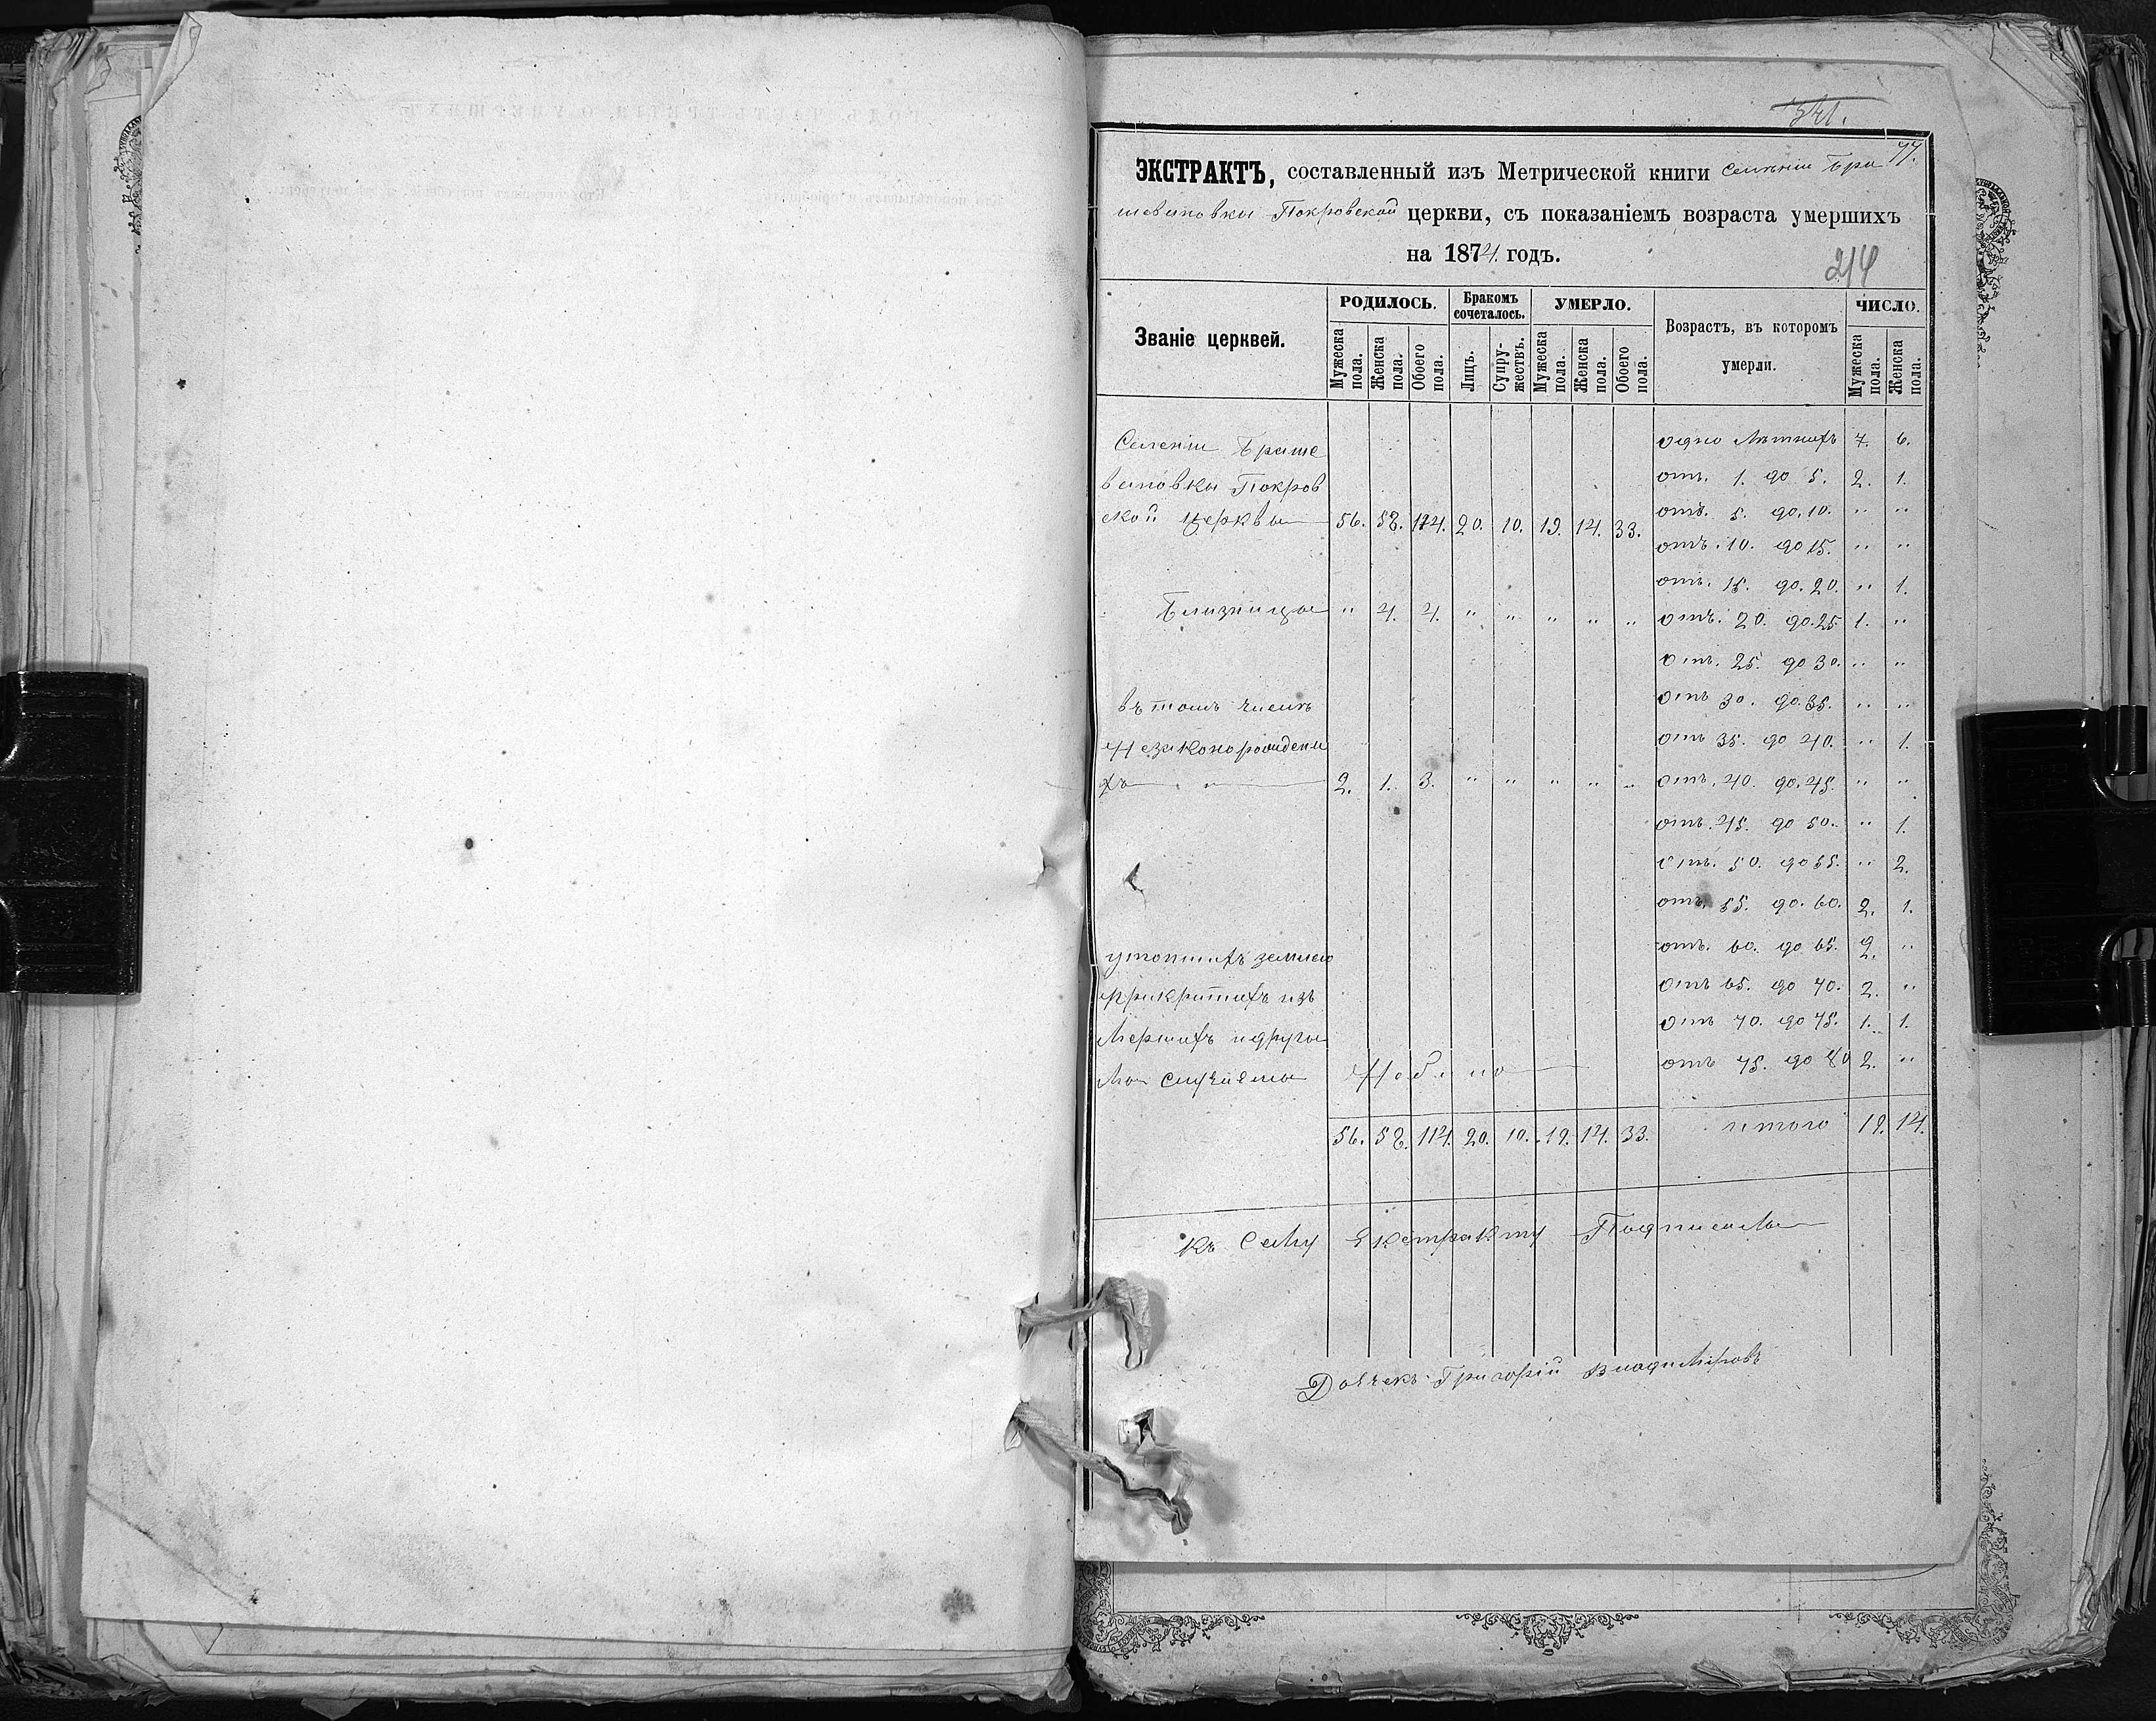 341.
77.
ЭКСТРАКТЪ, составленный изъ Метрической книги Селенія Бра
шевановки Покровской церкви, съ показаніемъ возраста умершихъ
на 1874. годъ.
214
Званіе церквей.
РОДИЛОСЬ.
Мужеска пола.
Женска пола.
Обоего пола.
Бракомъ сочеталось.
Лицъ.
Супружествъ.
УМЕРЛО.
Мужеска пола.
Женска пола.
Обоего пола.
Возрастъ, въ которомъ
умерли.
ЧИСЛО.
Мужеска пола.
Женска пола.
Селенія Браше
вановки Покров
ской Церквы 56. 58. 114. 20. 10. 19. 14. 33.
Близницы " 4. 4. " " " " "
въ томъ числѣ
Незаконорожденн
хъ 2. 1. 3. " " " " "
утопшихъ землею
прикритихъ изъ
Мерзшихъ и другы
Мы случаямы Небыло
56. 58. 114. 20. 10. 19. 14. 33.
одно лѣтнихъ 7. 6.
отъ. 1. до 5. 2. 1.
отъ. 5. до. 10. " "
отъ. 10. до 15. " "
отъ. 15. до. 20. " 1.
отъ. 20. до. 25. 1. "
отъ. 25. до 30. " "
отъ 30. до. 35. " "
отъ 35. до 40. " 1.
отъ. 40. до. 45. " "
отъ. 45. до 50. " 1.
отъ. 50. до 55. " 2.
отъ. 55. до. 60. 2. 1.
отъ. 60. до 65. 2. "
отъ 65. до 70. 2. "
отъ 70. до 75. 1. 1.
отъ 75. до 80 2. "
итого 19. 14.
Къ Сему Екстракту Подписалы
Дьячекъ Григорій Владиміровъ